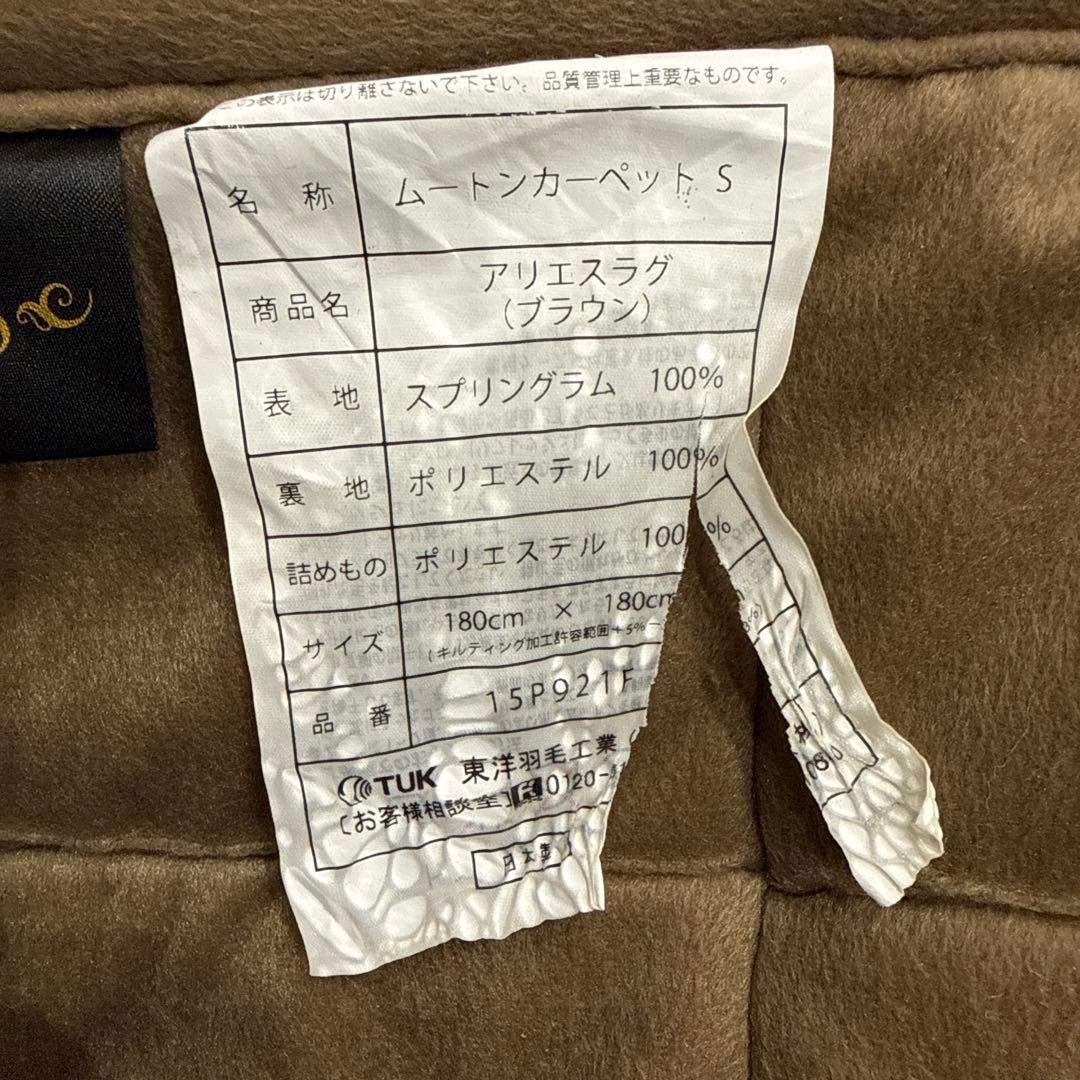 この表示は切り離さないで下さい。品質管理上重要なものです。
名 称 ムートンカーペット S
商品名 アリエスラグ
(ブラウン)
表 地 スプリングラム 100%
裏 地 ポリエステル 100%
詰めもの ポリエステル 100%
サイズ 180cm × 180cm
(キルティング加工許容範囲+5%−
品 番 15P921F
TUK 東洋羽毛工業(
[お客様相談室] 0120-
日本製